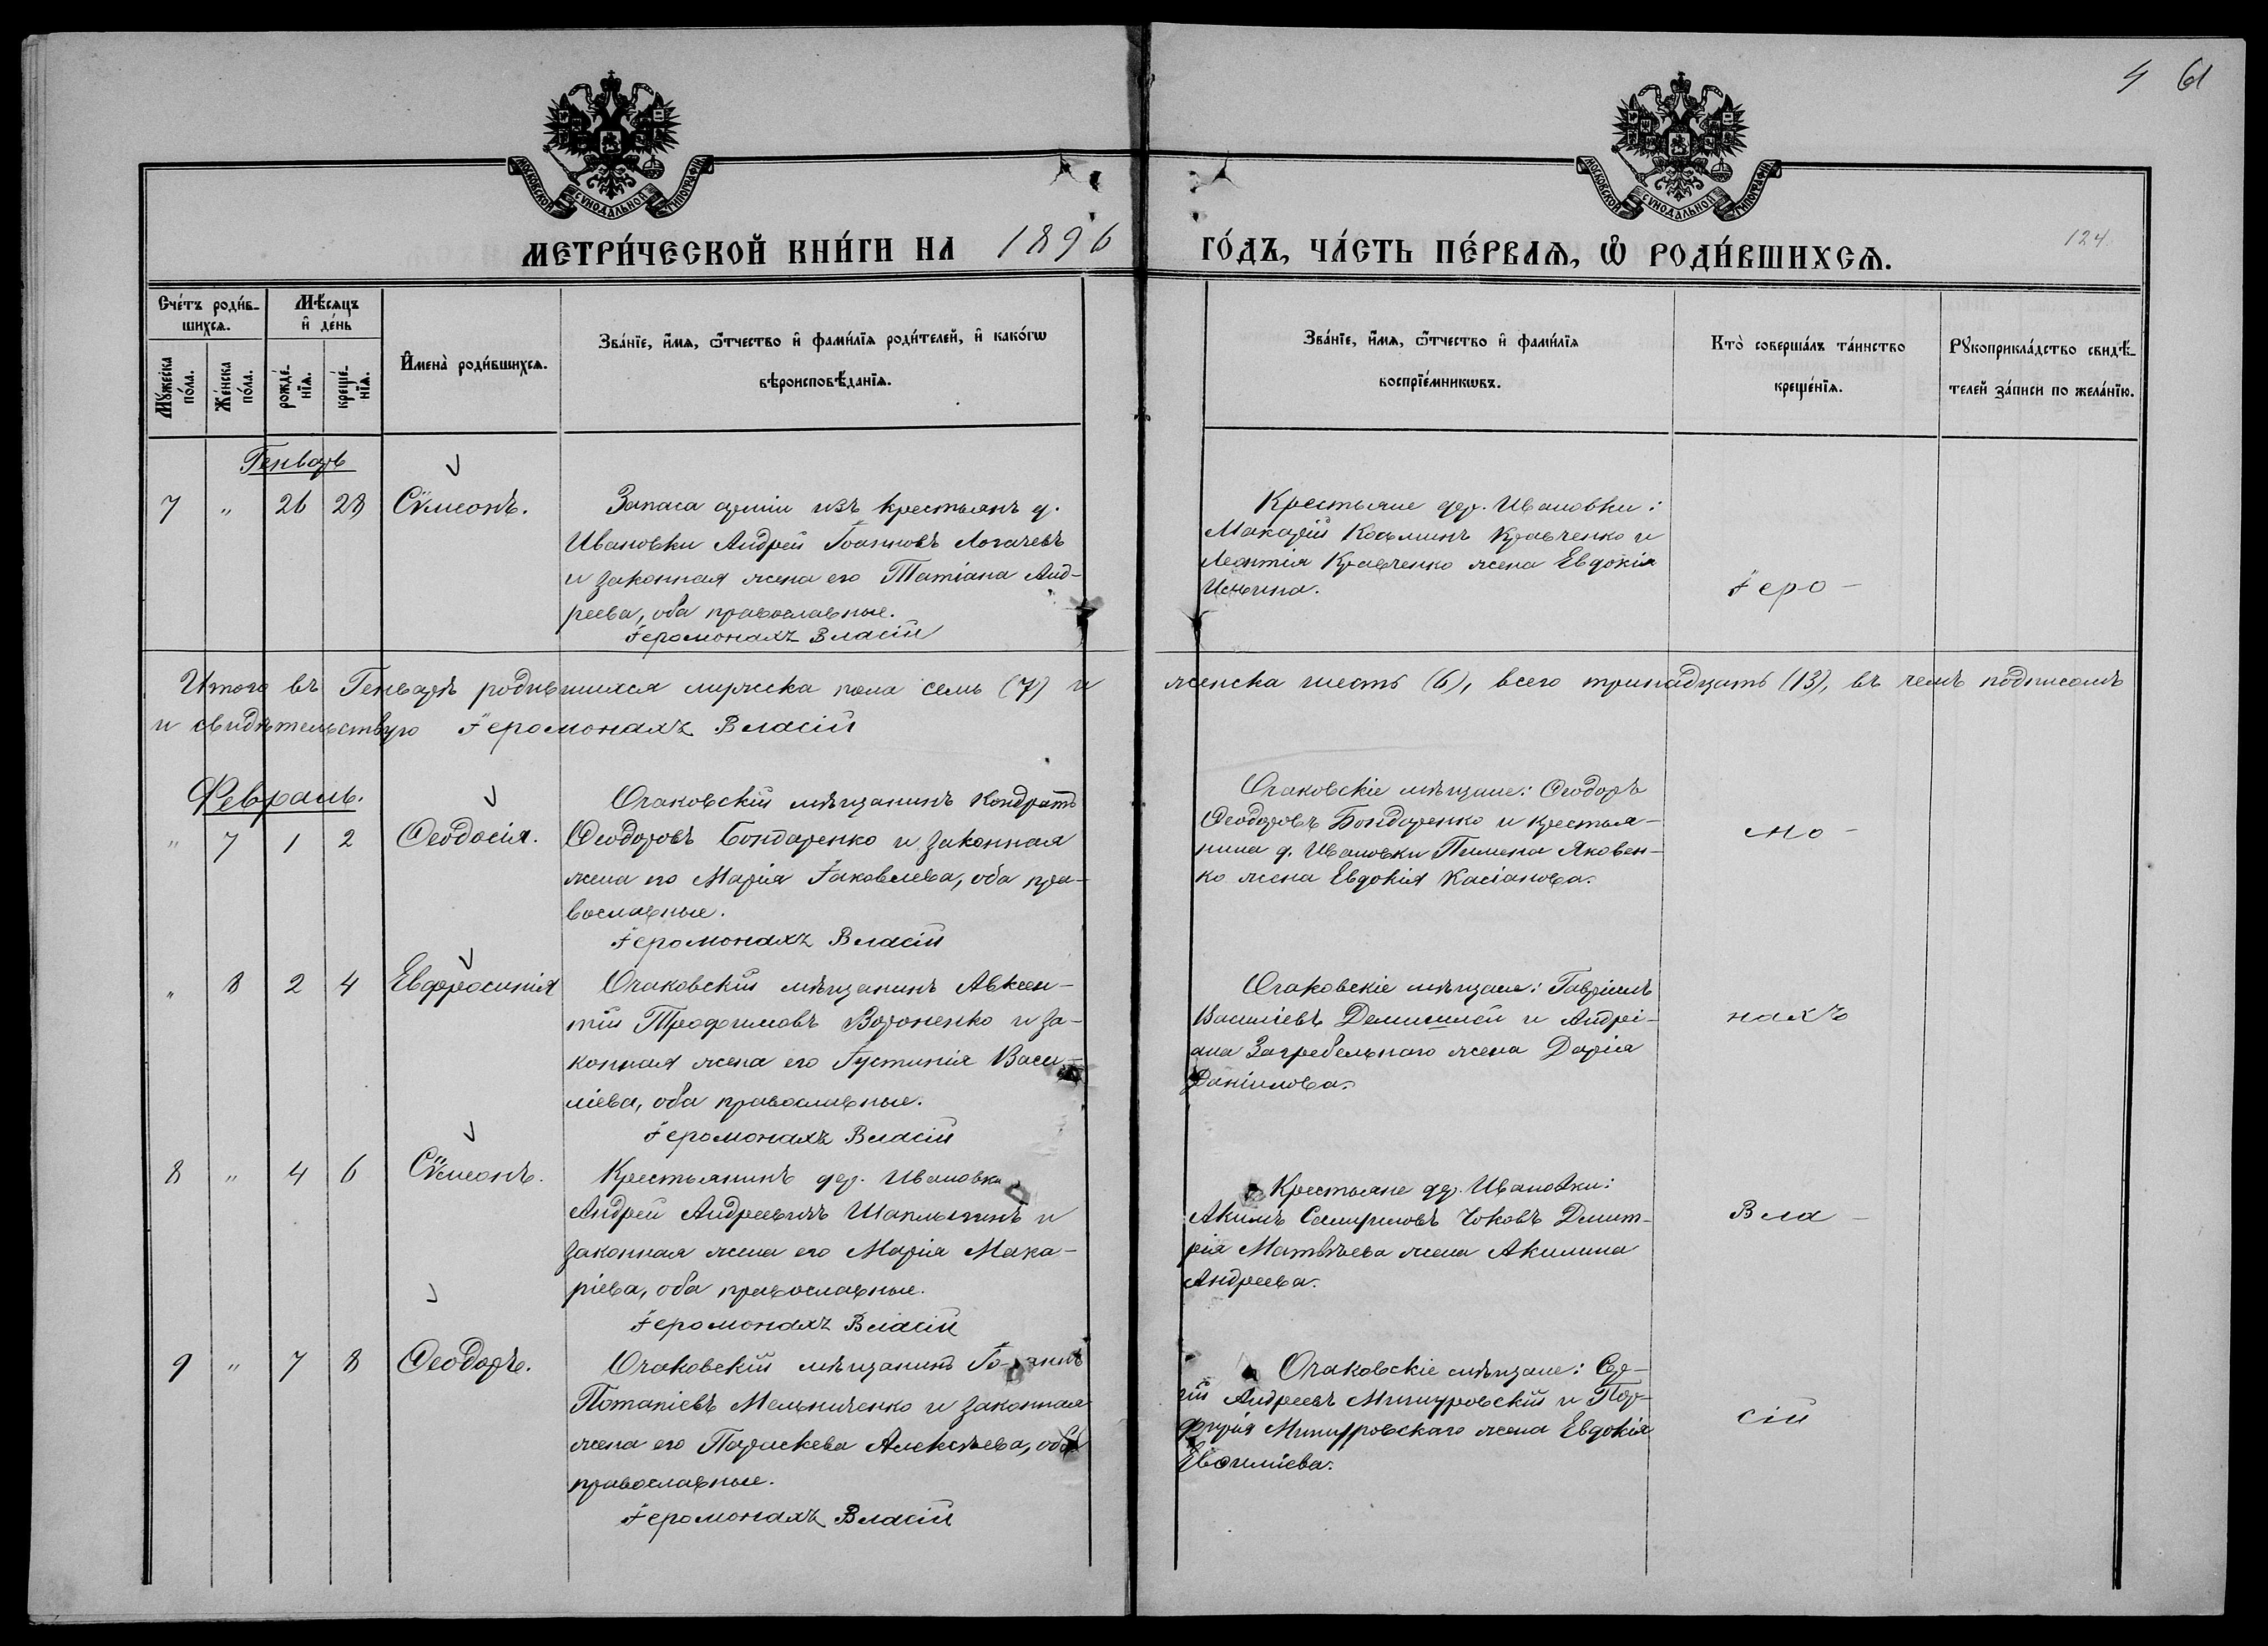 4 61
МОСКОВСКОЙ СѴНОДАЛЬНОЙ ТИПОГРАФІИ
МОСКОВСКОЙ СѴНОДАЛЬНОЙ ТИПОГРАФІИ
МЕТРИ́ЧЕСКОЙ КНИ́ГИ НА 1896 ГО́ДЪ, ЧА́СТЬ ПЕ́РВАѦ, Ѡ҆ РОДИ́ВШИХСѦ.
124.
Сче́тъ роди́в-
шихсѧ.
Мѣ́сѧцъ
и҆ де́нь
Мꙋ́жеска
по́ла.
Же́нска
по́ла.
рожде́-
нїѧ.
креще́-
нїѧ.
И҆мена̀ роди́вшихсѧ.
Зва́нїе, и҆́мѧ, ѻ҆́тчество и҆ фами́лїѧ роди́телей, и҆ како́гѡ
вѣроисповѣ́данїѧ.
Зва́нїе, и҆́мѧ, ѻ҆́тчество и҆ фами́лїѧ
воспрїе́мникѡвъ.
Кто̀ соверша́лъ та́инство
креще́нїѧ.
Рꙋкоприкла́дство свидѣ́-
телей за́писи по жела́нїю.
Генварь
7 " 26 28 Сѵмеонъ.
Запаса арміи изъ крестьянъ д.
Ивановки Андрей Іоанновъ Логачевъ
и законная жена его Татіана Анд-
реева, оба православные.
Іеромонахъ Власій
Крестьяне дер. Ивановки:
Макарій Косьминъ Кравченко и
Леонтія Кравченко жена Евдокія
Іеро-
Итого въ Генварѣ родившихся мужеска пола семь (7) и женска шесть (6), всего тринадцать (13), въ чемъ подписомъ
и свидѣтельствую Іеромонахъ Власій
Февраль.
" 7 1 2 Ѳеодосія.
Очаковскій мѣщанинъ Кондратъ
Ѳеодоровъ Бондаренко и законная
жена его Марія Іаковлева, оба пра-
вославные.
Іеромонахъ Власій
Очаковскіе мѣщане: Ѳеодоръ
Ѳеодоровъ Бондаренко и крестья-
нина д. Ивановки Пимена Яковен-
ко жена Евдокія Касіанова.
мо-
" 8 2 4 Евфросинія
Очаковскій мѣщанинъ Авксен-
тій Трофимовъ Вороненко и за-
конная жена его Іустинія Васи-
ліева, оба православные.
Іеромонахъ Власій
Очаковскіе мѣщане: Гавріилъ
Василіевъ и Андрі-
ана Загребельнаго жена Дарія
Даніилова.
нахъ
8 " 4 6 Сѵмеонъ.
Крестьянинъ дер. Ивановки
Андрей Андреевичъ Шаплыгинъ и
законная жена его Марія Мака-
ріева, оба православные.
Іеромонахъ Власій
Крестьяне дер. Ивановки:
Акимъ Чоковъ Димит-
рія Матвѣева жена Акилина
Андреева.
Вла-
9 " 7 8 Ѳеодоръ.
Очаковскій мѣщанинъ Іоаннъ
Потапіевъ Мельниченко и законная
жена его Параскева Алексѣева, оба
православные.
Іеромонахъ Власій
Очаковскіе мѣщане: Сер-
гій Андреевъ Мишуровскій и Пор-
фирія Мишуровскаго жена Евдокія
сій